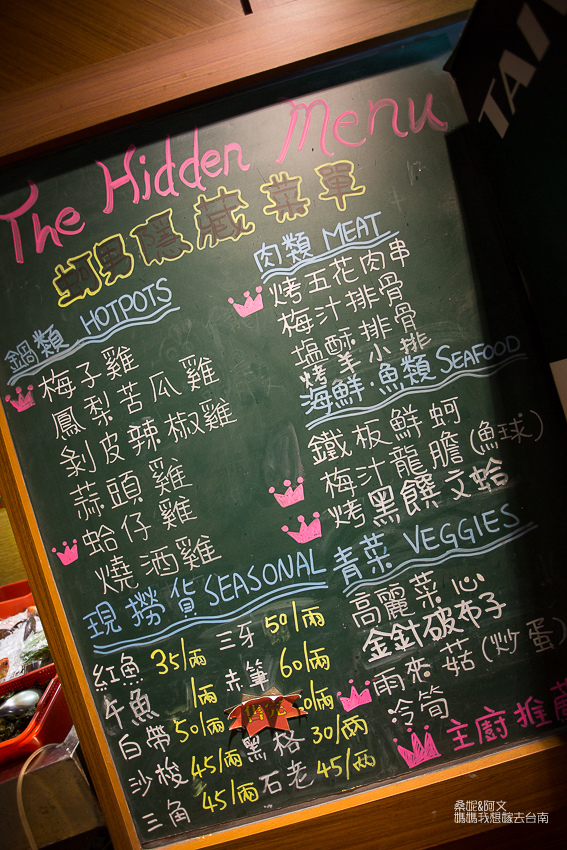 TAI
The Hidden Menu
蚵男隱藏菜單
鍋類 HOTPOTS
梅子雞
鳳梨苦瓜雞
剝皮辣椒雞
蒜頭雞
蛤仔雞
燒酒雞
肉類 MEAT
烤五花肉串
梅汁排骨
塩酥排骨
烤羊小排
海鮮·魚類 SEAFOOD
鐵板鮮蚵
梅汁龍膽(魚球)
烤黑饌文蛤
現撈貨 SEASONAL
紅魚 35/兩
午魚 /兩
白帶 50/兩
沙梭 45/兩
三角 45/兩
三牙 50/兩
赤筆 60/兩
0/兩
黑格 30/兩
石老 45/兩
青菜 VEGGIES
高麗菜心
金針破布子
雨來菇(炒蛋)
冷筍
主廚推薦
桑妮&阿文
媽媽我想嫁去台南